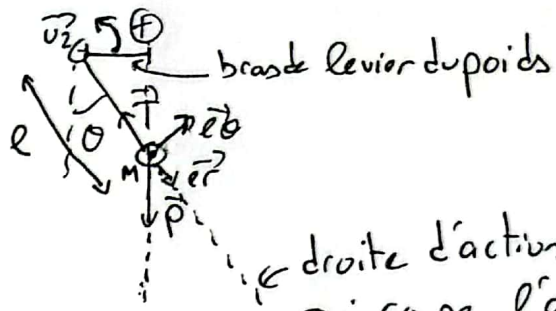 u⃗z +
bras de levier du poids
T⃗
l θ e⃗θ
M e⃗r
P⃗
droite d'action